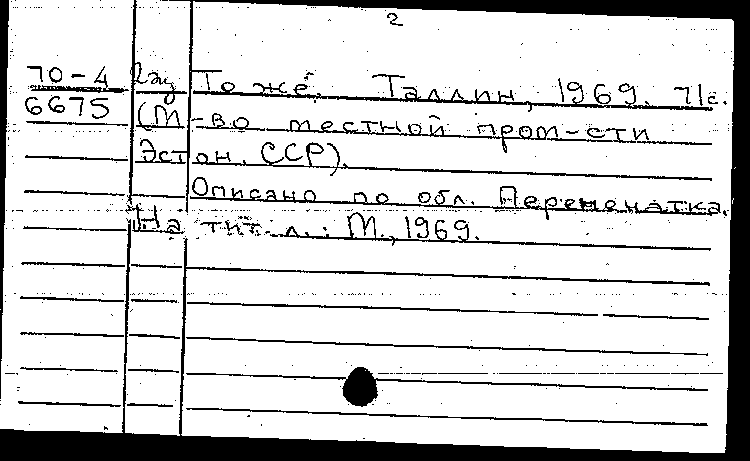 2
70-4 2эк То же. Таллин, 1969. 71с.
6675 (М-во местной пром-сти
Эстон. ССР).
Описано по обл. Перепечатка.
На тит. л.: М., 1969.